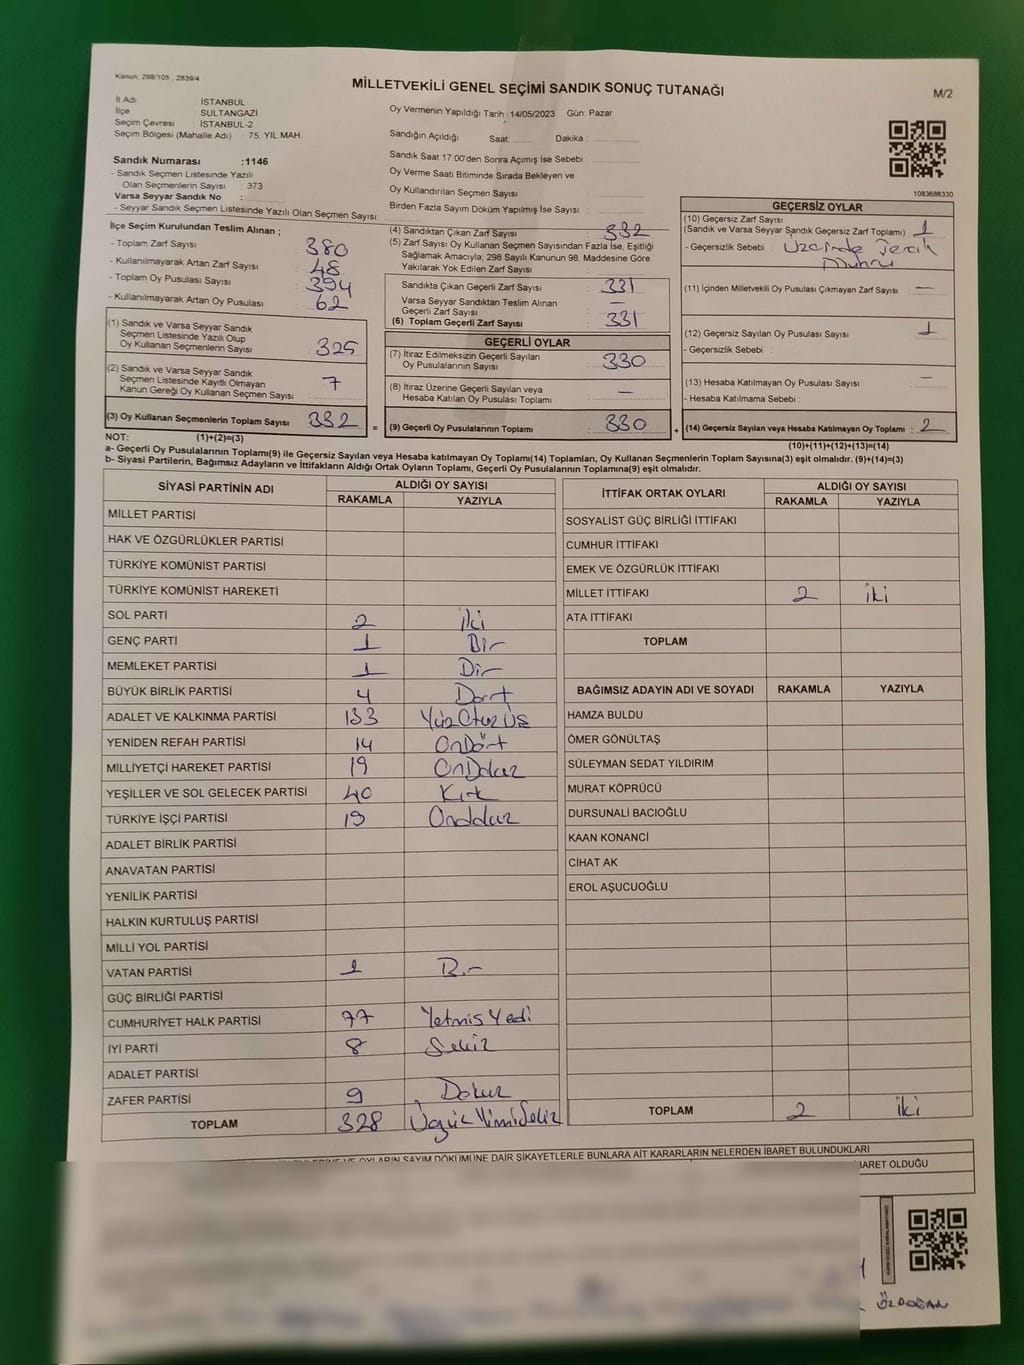 Kanun: 298/105 , 2839/4
MİLLETVEKİLİ GENEL SEÇİMİ SANDIK SONUÇ TUTANAĞI
M/2
İl Adı : İSTANBUL
İlçe : SULTANGAZİ
Seçim Çevresi : İSTANBUL-2
Seçim Bölgesi (Mahalle Adı) : 75. YIL MAH.
Sandık Numarası :1146
- Sandık Seçmen Listesinde Yazılı
Olan Seçmenlerin Sayısı : 373
Varsa Seyyar Sandık No :
- Seyyar Sandık Seçmen Listesinde Yazılı Olan Seçmen Sayısı:
Oy Vermenin Yapıldığı Tarih :14/05/2023 Gün: Pazar
Sandığın Açıldığı Saat: Dakika :
Sandık Saat 17:00'den Sonra Açımış İse Sebebi :
Oy Verme Saati Bitiminde Sırada Bekleyen ve
Oy Kullandırılan Seçmen Sayısı :
Birden Fazla Sayım Döküm Yapılmış İse Sayısı :
1083686330
İlçe Seçim Kurulundan Teslim Alınan ;
- Toplam Zarf Sayısı : 380
- Kullanılmayarak Artan Zarf Sayısı : 48
- Toplam Oy Pusulası Sayısı : 394
- Kullanılmayarak Artan Oy Pusulası : 62
(1) Sandık ve Varsa Seyyar Sandık
Seçmen Listesinde Yazılı Olup
Oy Kullanan Seçmenlerin Sayısı : 325
(2) Sandık ve Varsa Seyyar Sandık
Seçmen Listesinde Kayıtlı Olmayan
Kanun Gereği Oy Kullanan Seçmen Sayısı : 7
(3) Oy Kullanan Seçmenlerin Toplam Sayısı : 332
(4) Sandıktan Çıkan Zarf Sayısı : 332
(5) Zarf Sayısı Oy Kullanan Seçmen Sayısından Fazla İse, Eşitliği
Sağlamak Amacıyla; 298 Sayılı Kanunun 98. Maddesine Göre
Yakılarak Yok Edilen Zarf Sayısı :
Sandıkta Çıkan Geçerli Zarf Sayısı : 331
Varsa Seyyar Sandıktan Teslim Alınan
Geçerli Zarf Sayısı : —
(6) Toplam Geçerli Zarf Sayısı : 331
GEÇERLİ OYLAR
(7) İtiraz Edilmeksizin Geçerli Sayılan
Oy Pusulalarının Sayısı : 330
(8) İtiraz Üzerine Geçerli Sayılan veya
Hesaba Katılan Oy Pusulaları Toplamı : —
= (9) Geçerli Oy Pusulalarının Toplamı : 330
GEÇERSİZ OYLAR
(10) Geçersiz Zarf Sayısı
(Sandık ve Varsa Seyyar Sandık Geçersiz Zarf Toplamı) : 1
- Geçersizlik Sebebi : Üzerinde Tercih
Mührü
(11) İçinden Milletvekili Oy Pusulası Çıkmayan Zarf Sayısı : —
(12) Geçersiz Sayılan Oy Pusulası Sayısı : 1
- Geçersizlik Sebebi :
(13) Hesaba Katılmayan Oy Pusulası Sayısı : —
- Hesaba Katılmama Sebebi :
+ (14) Geçersiz Sayılan veya Hesaba Katılmayan Oy Toplamı : 2
NOT: (1)+(2)=(3)
(10)+(11)+(12)+(13)=(14)
a- Geçerli Oy Pusulalarının Toplamı(9) ile Geçersiz Sayılan veya Hesaba katılmayan Oy Toplamı(14) Toplamları, Oy Kullanan Seçmenlerin Toplam Sayısına(3) eşit olmalıdır. (9)+(14)=(3)
b- Siyasi Partilerin, Bağımsız Adayların ve İttifakların Aldığı Ortak Oyların Toplamı, Geçerli Oy Pusulalarının Toplamına(9) eşit olmalıdır.
SİYASİ PARTİNİN ADI ALDIĞI OY SAYISI
RAKAMLA YAZIYLA
MİLLET PARTİSİ
HAK VE ÖZGÜRLÜKLER PARTİSİ
TÜRKİYE KOMÜNİST PARTİSİ
TÜRKİYE KOMÜNİST HAREKETİ
SOL PARTİ 2 İki
GENÇ PARTİ 1 Bir
MEMLEKET PARTİSİ 1 Bir
BÜYÜK BİRLİK PARTİSİ 4 Dört
ADALET VE KALKINMA PARTİSİ 133 YüzOtuzÜç
YENİDEN REFAH PARTİSİ 14 OnDört
MİLLİYETÇİ HAREKET PARTİSİ 19 OnDokuz
YEŞİLLER VE SOL GELECEK PARTİSİ 40 Kırk
TÜRKİYE İŞÇİ PARTİSİ 19 Ondokuz
ADALET BİRLİK PARTİSİ
ANAVATAN PARTİSİ
YENİLİK PARTİSİ
HALKIN KURTULUŞ PARTİSİ
MİLLİ YOL PARTİSİ
VATAN PARTİSİ 1 Bir
GÜÇ BİRLİĞİ PARTİSİ
CUMHURİYET HALK PARTİSİ 77 Yetmiş Yedi
İYİ PARTİ 8 Sekiz
ADALET PARTİSİ
ZAFER PARTİSİ 9 Dokuz
TOPLAM 328 ÜçyüzYirmiSekiz
İTTİFAK ORTAK OYLARI ALDIĞI OY SAYISI
RAKAMLA YAZIYLA
SOSYALİST GÜÇ BİRLİĞİ İTTİFAKI
CUMHUR İTTİFAKI
EMEK VE ÖZGÜRLÜK İTTİFAKI
MİLLET İTTİFAKI 2 iki
ATA İTTİFAKI
TOPLAM
BAĞIMSIZ ADAYIN ADI VE SOYADI RAKAMLA YAZIYLA
HAMZA BULDU
ÖMER GÖNÜLTAŞ
SÜLEYMAN SEDAT YILDIRIM
MURAT KÖPRÜCÜ
DURSUNALİ BACIOĞLU
KAAN KONANCİ
CİHAT AK
EROL AŞUCUOĞLU
TOPLAM 2 iki
VE OYLARIN SAYIM DÖKÜMÜNE DAİR ŞİKAYETLERLE BUNLARA AİT KARARLARIN NELERDEN İBARET BULUNDUKLARI
BARET OLDUĞU
ÖZDOĞAN